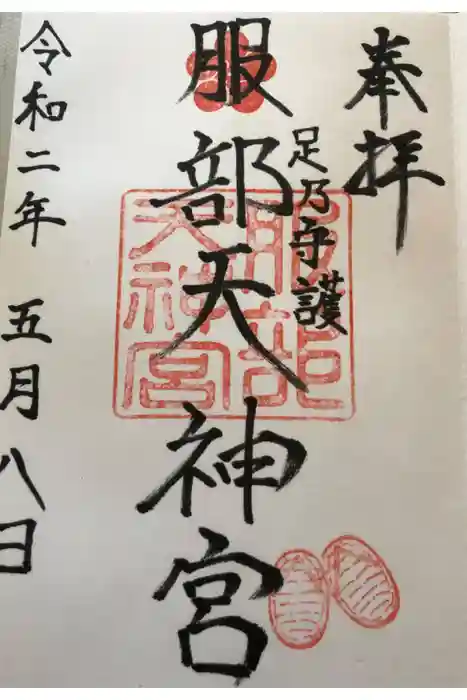 奉拝
足乃守護
服部天神宮
服部
天神宮
令和二年 五月八日